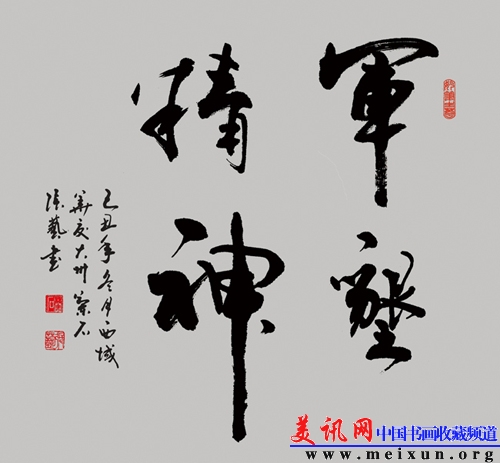 軍墾
精神
己丑年冬月西域
藝書
美讯网中国书画收藏频道
www.meixun.org